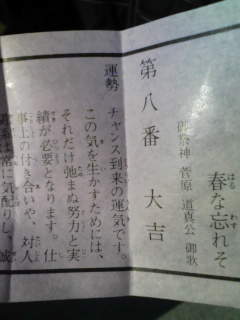 春な忘れそ
御祭神 菅原 道真公 御歌
第八番 大吉
運勢 チャンス到来の運気です。
この気を生かすためには、
それだけ弛まぬ努力と実
績が必要となります。仕
事上の付き合いや、対人
関係は常に気配りし、誠